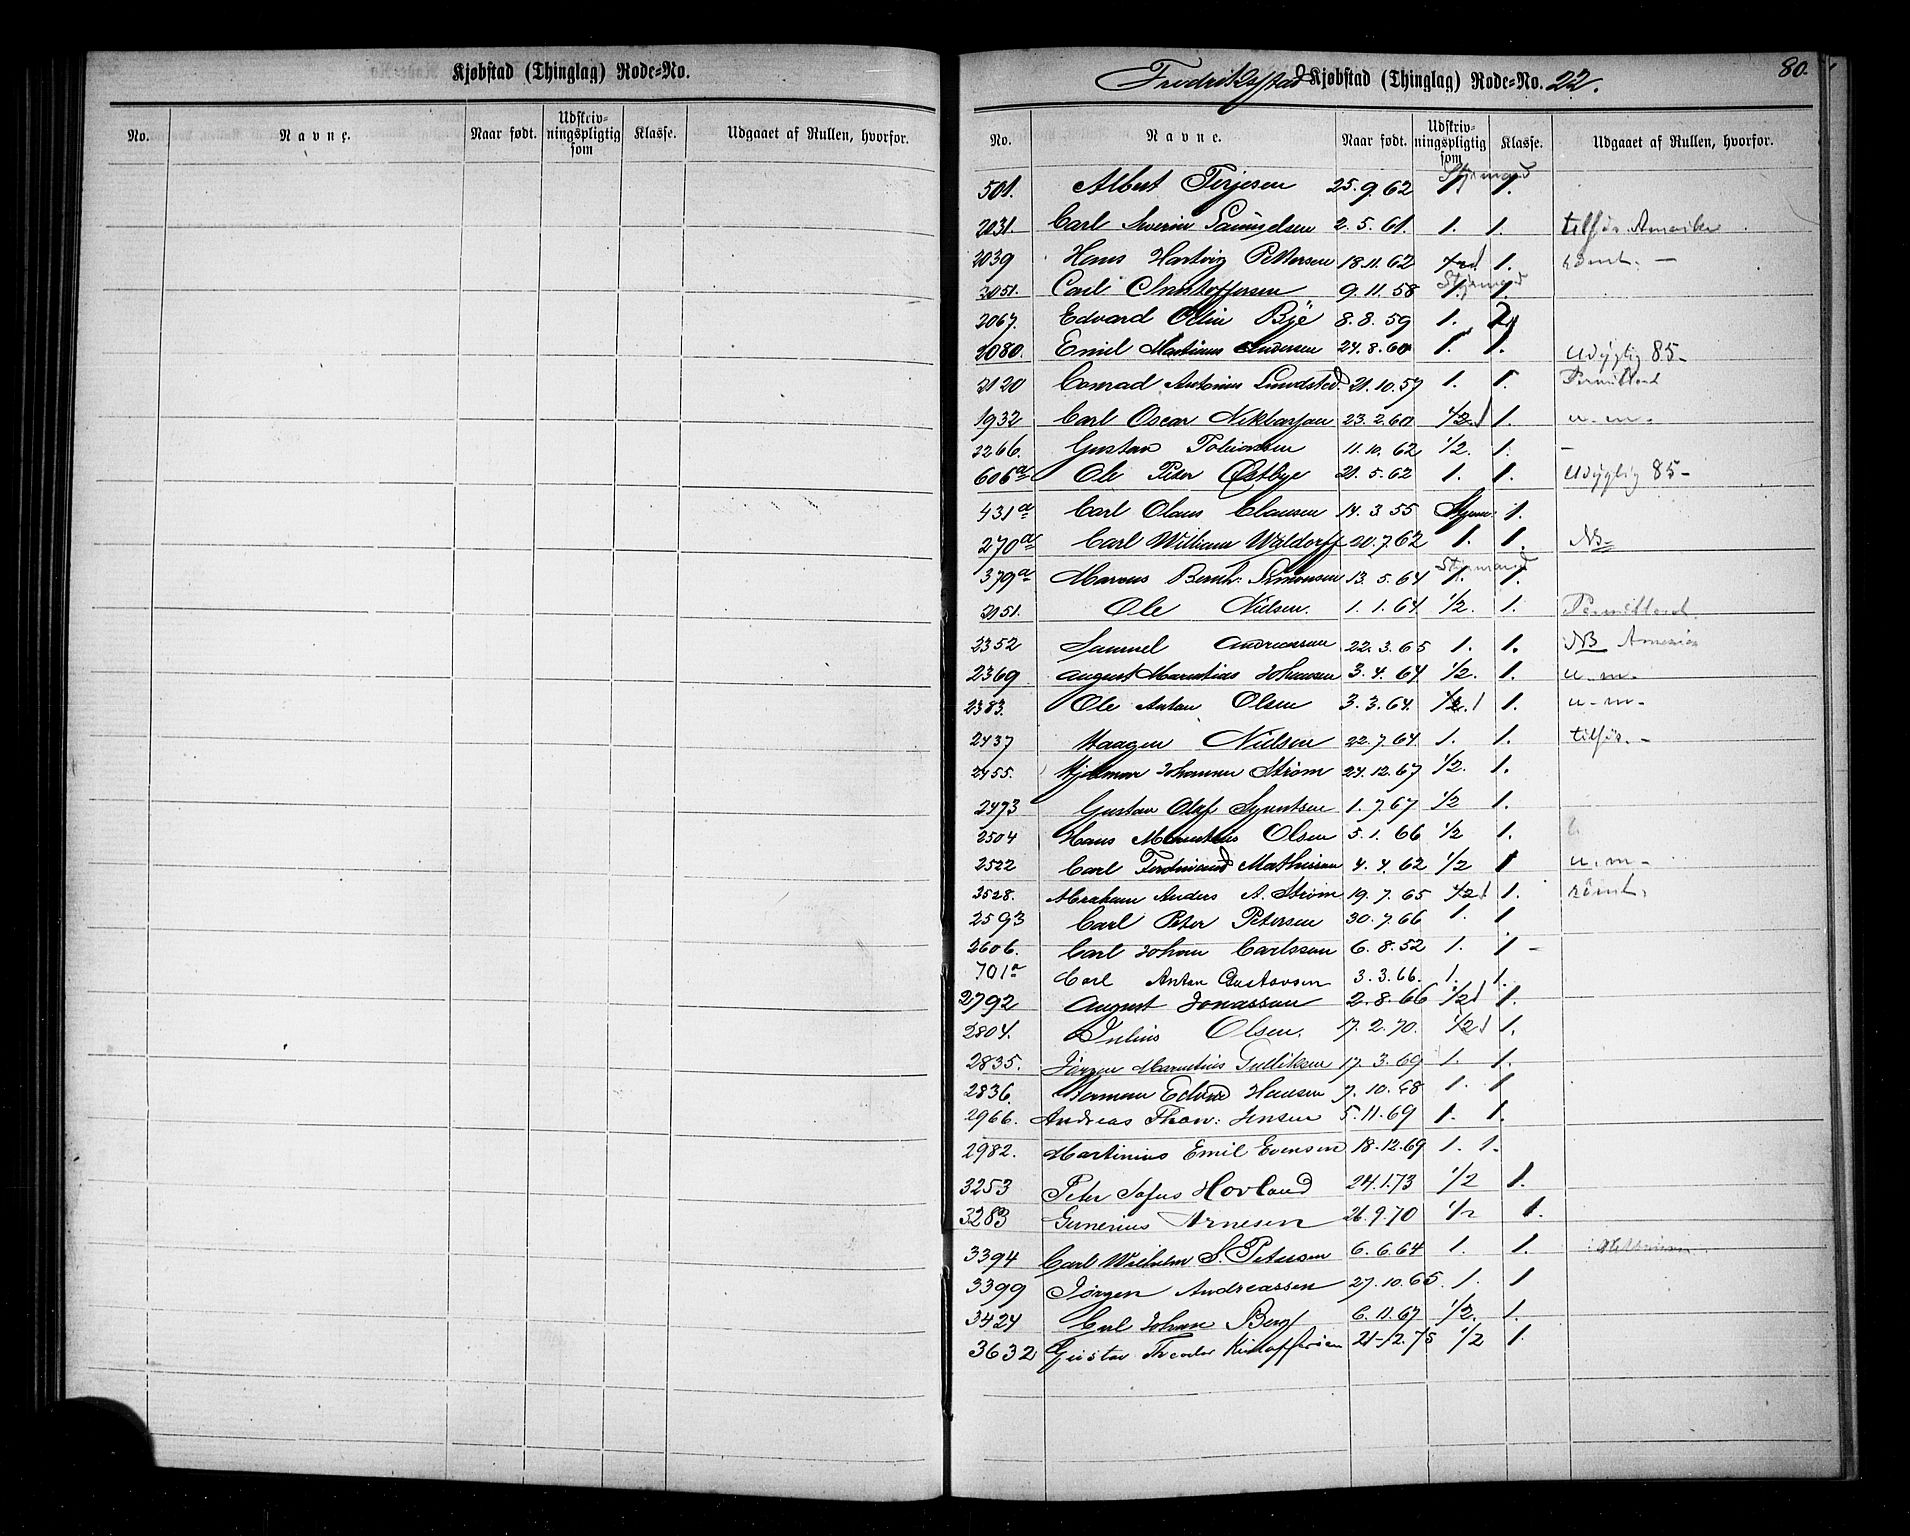 Kjøbstad (Thinglag) Rode-No.
No. Navne. Naar født. Udskriv-ningspligtig som Klasse. Udgaaet af Rullen, hvorfor.
80.
Fredrikstad Kjøbstad (Thinglag) Rode-No. 22.
No. Navne. Naar født. Udskriv-ningspligtig som Klasse. Udgaaet af Rullen, hvorfor.
501. Albert Terjesen 25.9.62 Styrmand 1.
2031. Carl Severin Samuelsen 2.5.61. 1. 1. tilfør. Amerika
2039 Hans Hartvig Pettersen 18.11.62 1. rømt. —
2051. Carl Christoffersen 9.11.58 Styrmand 1.
2067. Edvard Odin Bye 8.8.59 1.
2080. Emil Martinus Andersen 24.8.60 1. 1. Udygtig 85-
2120 Conrad Antonius Lundsted 21.10.57 1. 1. Permitterd
1932 Carl Oscar 23.2.60 1/2. 1 1. u.m.
2266. Gustav Tobiassen 11.10.62 1/2. 1. —
606a Ole Peter Østbye 21.5.62 1. 1. Udygtig 85-
431a Carl Olaus Clausen 14.3.55 Styrm: 1.
270a Carl William Waldorff 20.7.62 1. 1. NB-
379a Marcus Bernh: Simonsen 13.5.64 Styrmand 1.
2151. Ole Nielsen. 1.1.64 1/2. 1. Permitterd.
2352 Samuel Andreassen 22.3.65 1. 1. NB Amerika
2369 August Marentius Johansen 3.4.64 1/2. 1. u.m.
2383. Ole Anton Olsen 3.3.64. 1/2. 1 1. u.m.
2437 Haagen Nielsen 22.7.64 1. 1. tilfør. —
2455. Hjalmar Johannes Strøm 24.12.67 1/2. 1.
2473 Gustav Olaf Syvertsen 1.7.67 1/2 1.
2504 Hans Marentius Olsen 5.1.66 1/2 1.
2522 Carl Ferdinand Mathisen 4.4.62 1/2 1 u.m-
2528. Abraham Anders A. Strøm 19.7.65 1/2 1 1. rømt.
2593 Carl Peter Petersen 30.7.66 1. 1
2606. Carl Johan Carlsson 6.8.52 1. 1 -
701a Carl Anton Gustavsen 3.3.66. 1. 1.
2792 August Jonassen 2.8.66 1/2 1 1.
2804. Julius Olsen. 17.2.70. 1/2 1 1.
2835. Jørgen Marentius Gulliksen 17.3.69 1. 1.
2836. Herman Edvard Hansen 7.10.68 1. 1
2966. Andreas Thorv: Jensen 5.11.69 1. 1.
2982. Martinius Emil Evensen 18.12.69 1. 1.
3253 Peter Sofus Hovland 24.1.73 1/2 1.
3283 Gunerius Arnesen 26.9.70 1/2 1.
3394 Carl Wilhelm S. Petersen 6.6.64 1. 1.
3399 Jørgen Andreassen 27.10.65. 1. 1
3424 Carl Johan Berg 6.11.67 1/2. 1.
3632 Gustav Theodor Kristoffersen 21-12.75 1/2 1.